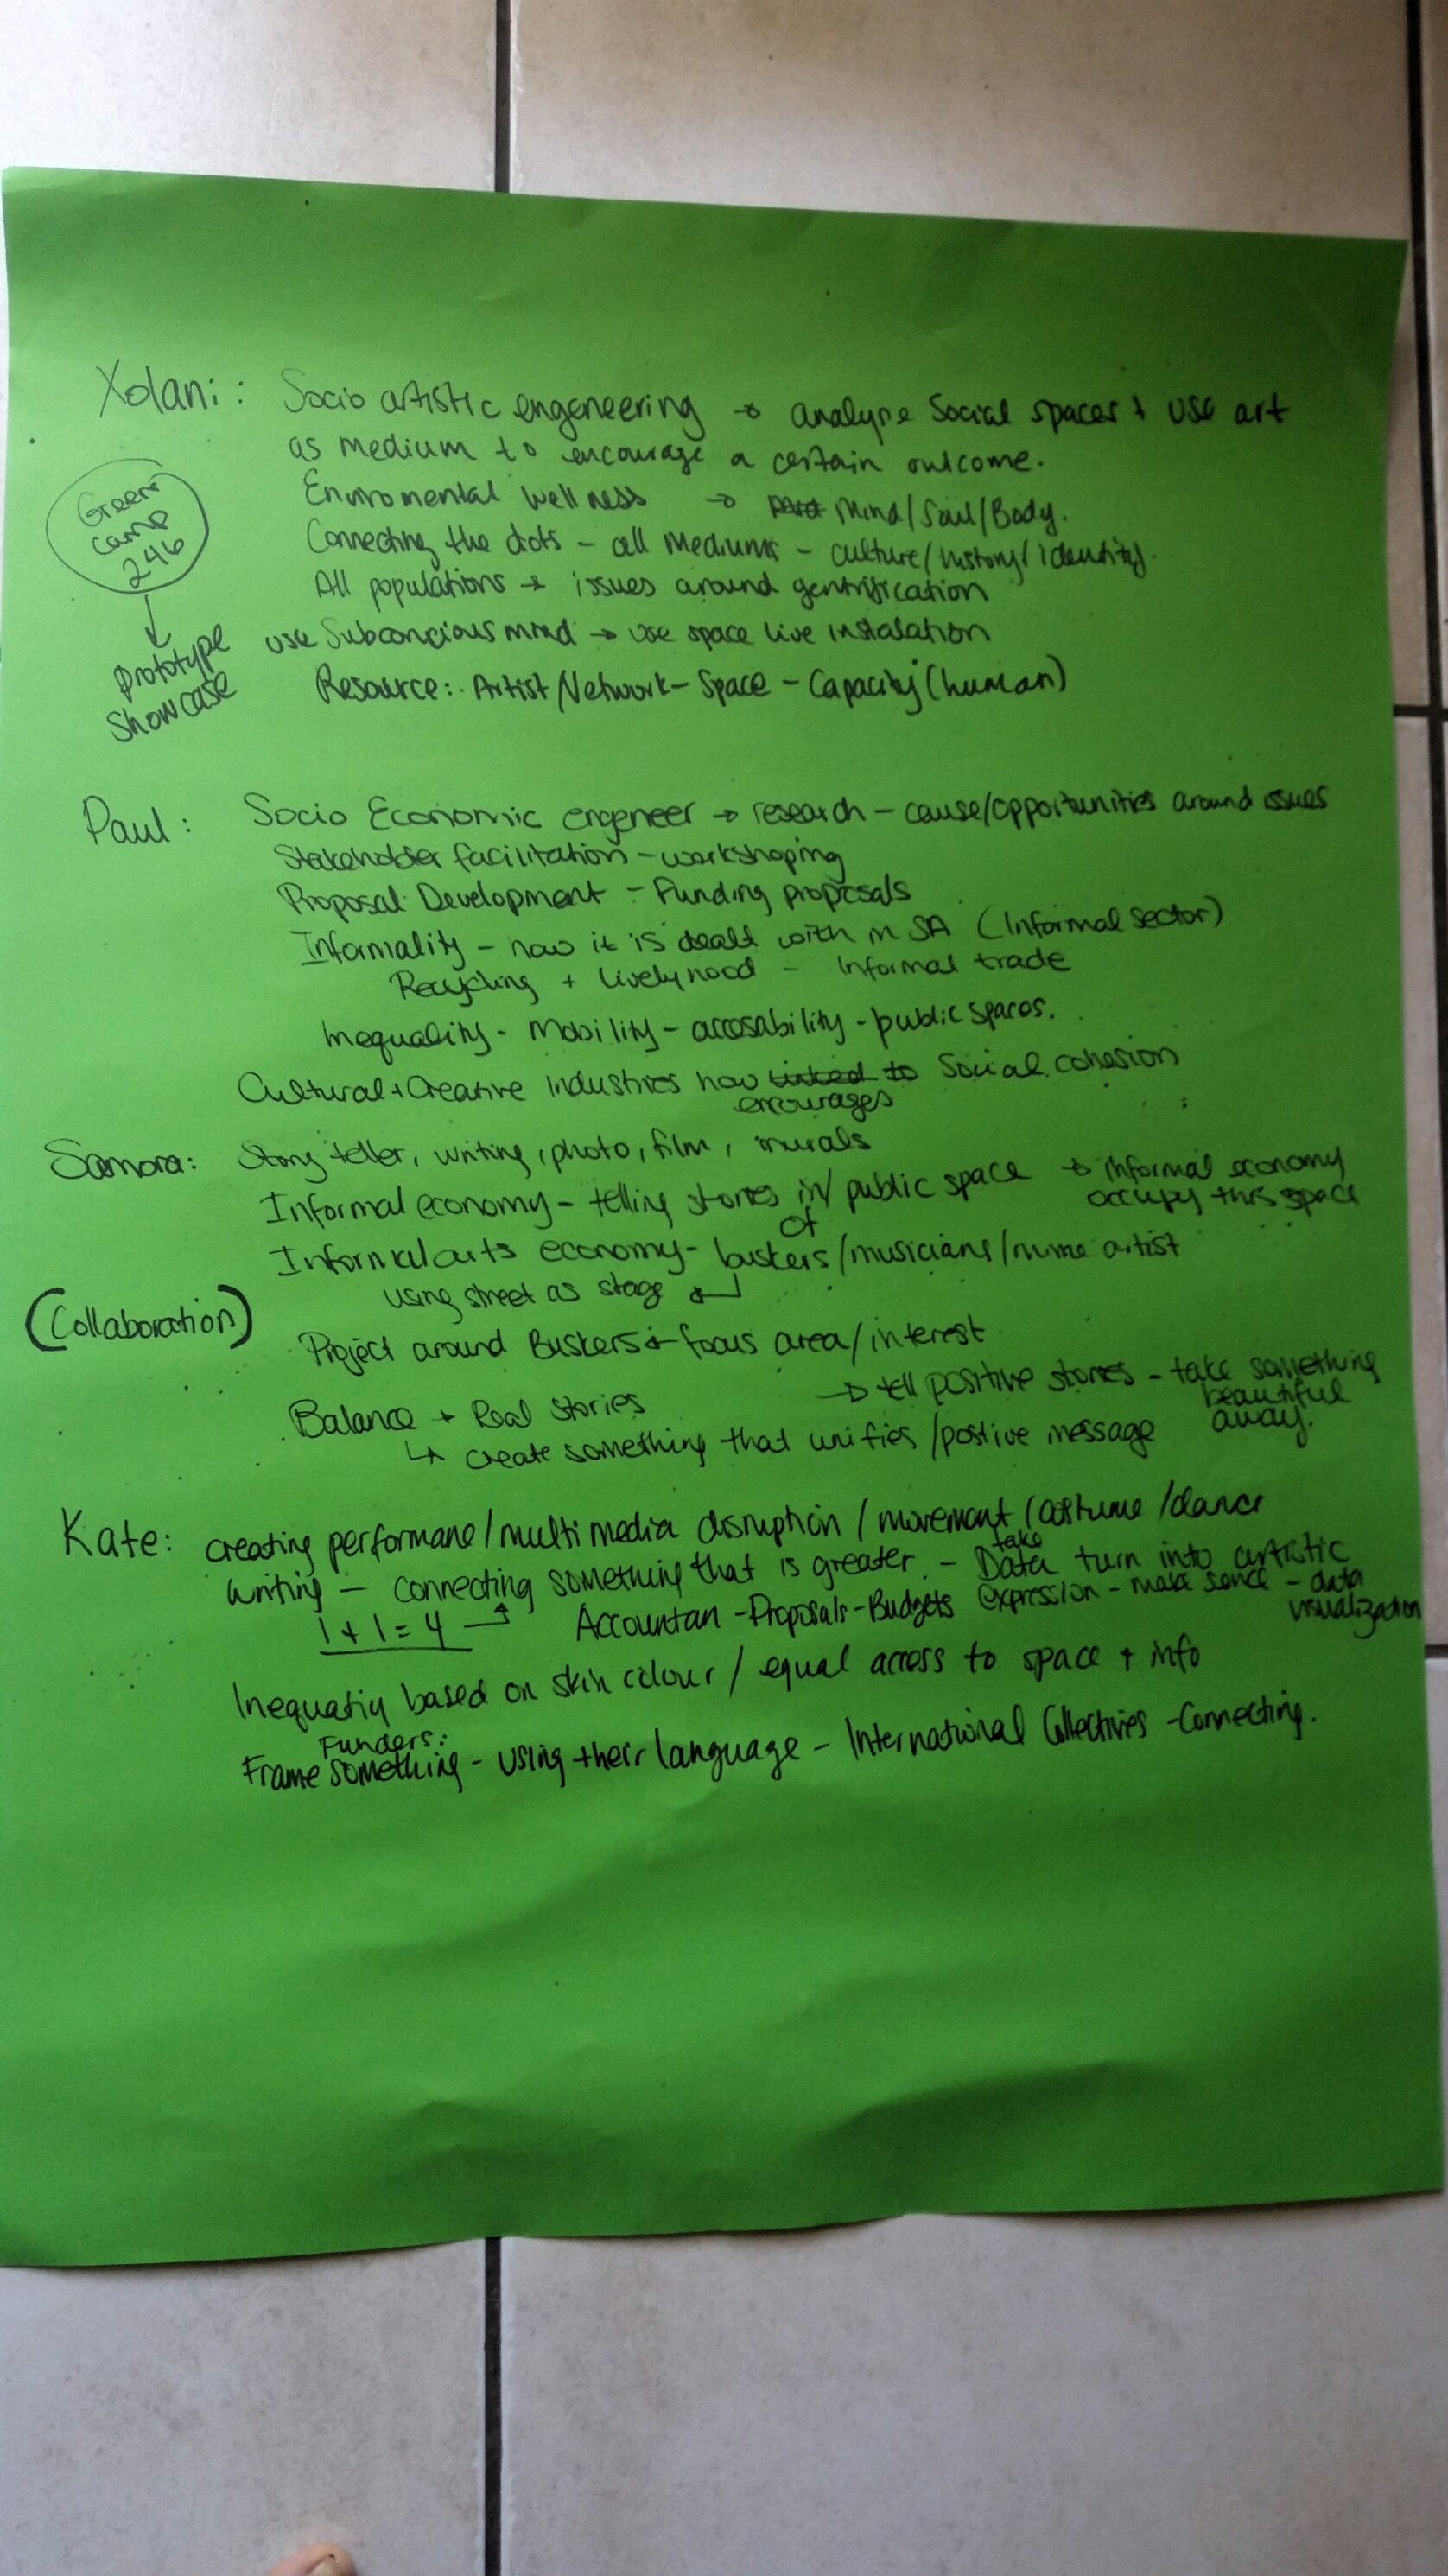 Xolani: Socio artistic engeneering → analyse Social spaces + use art
as medium to encourage a certain outcome.
Enviromental wellness → Mind/Soul/Body.
Connecting the dots - all mediums - culture/history/identity.
All populations → issues around gentrification
use Subconcious mind → use space live instalation
Resource: Artist/Network - Space - Capacity (human)
Green
camp
246
prototype
showcase
Paul: Socio Economic engeneer → research - cause/opportunities around issues
Stakeholder facilitation - workshoping
Proposal Development - Funding proposals
Informality - how it is dealt with in SA (Informal Sector)
Recycling + livelyhood - Informal trade
Inequality - Mobility - accosability - public spaces.
Cultural + Creative Industries how linked to Social cohesion
encourages
Samora: Story teller, writing, photo, film, murals
Informal economy - telling stories in/ public space → informal economy
of
occupy this space
Informal arts economy - buskers/musicians/mime artist
using street as stage
(Collaboration)
Project around Buskers + focus area/interest
Balance + Real stories → tell positive stories - take something
beautiful
away.
↳ create something that unifies/postive message
Kate: creating performane/multimedia disruption/movement/costume/dance
take
writing - connecting something that is greater - Data turn into artistic
1 + 1 = 4 Accountan - Proposals - Budgets expression - make sence - data
visualization
Inequatiy based on skin colour/equal access to space + info
Funders:
Frame something - using their language - International Collectives - Connecting.